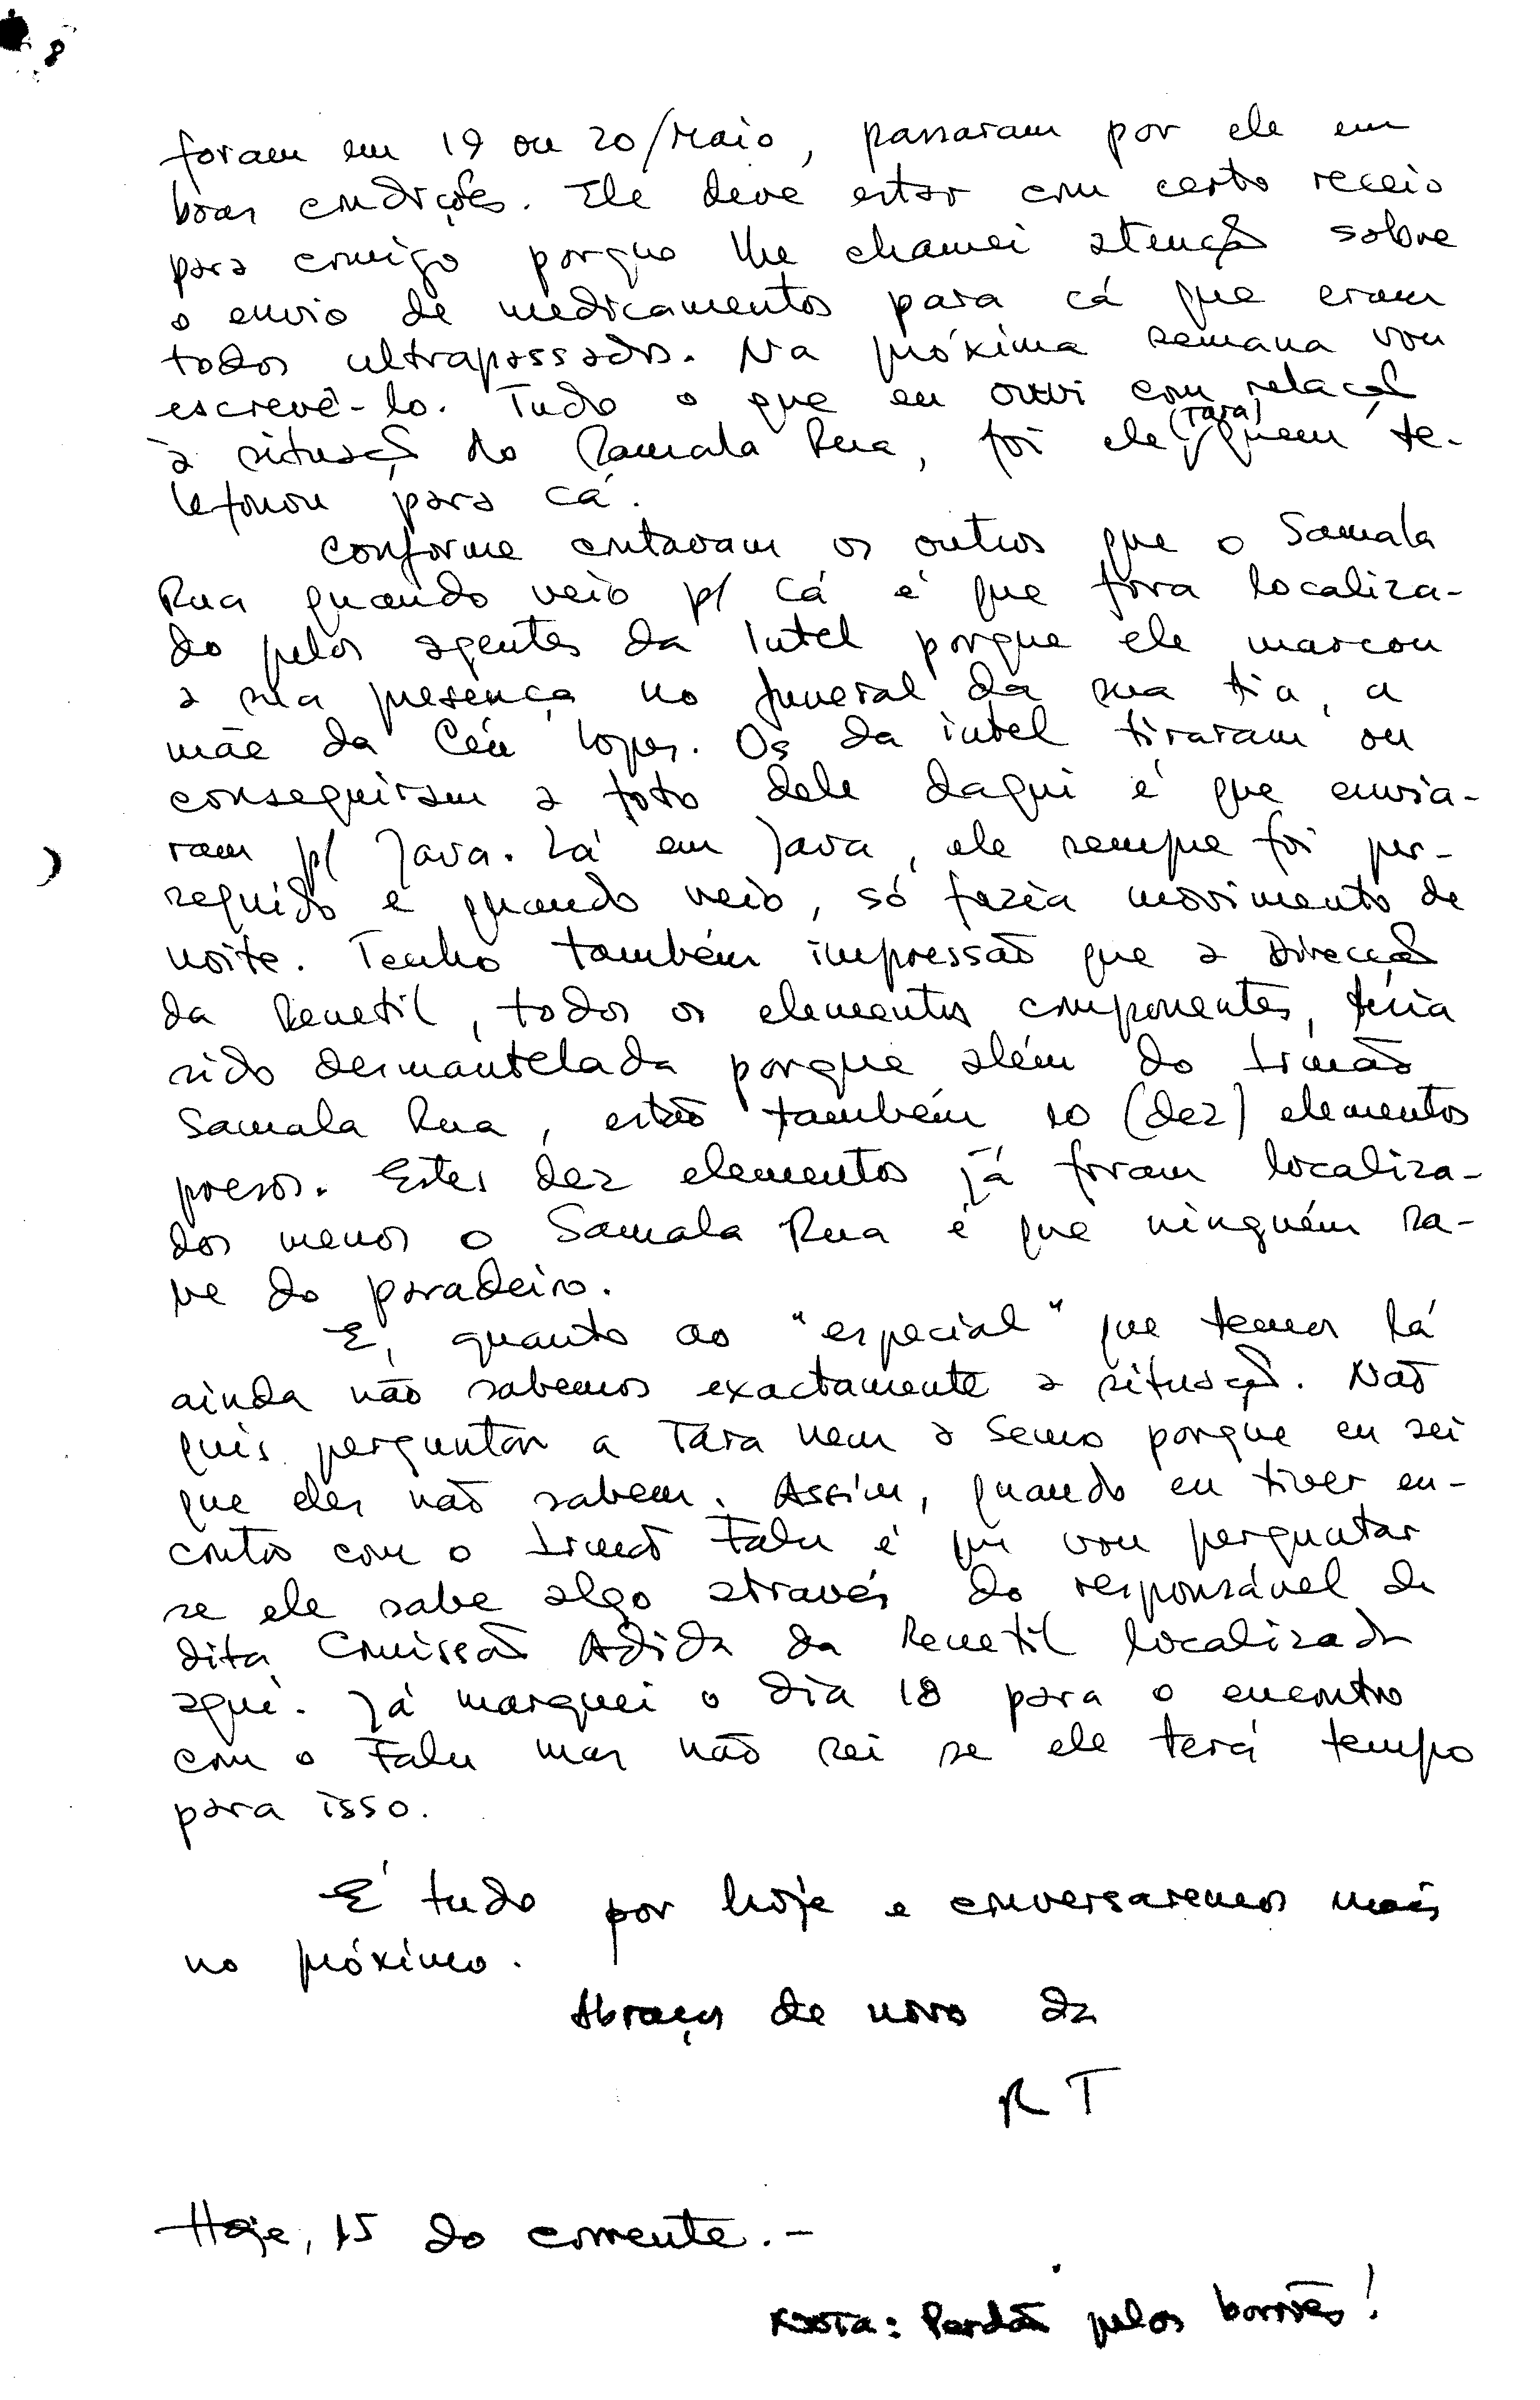 8
foram em 19 ou 20/Maio, passaram por ele em
boas condições. Ele deve estar com certo receio
para comigo porque lhe chamei atenção sobre
o envio de medicamentos para cá que eram
todos ultrapassados. Na próxima semana vou
escrevê-lo. Tudo o que eu ouvi com relação
à situação do Ramala Rua, foi ele (Tara) quem te-
lefonou para cá.
Conforme contavam os outros que o Samala
Rua quando veio p/ cá é que fora localiza-
do pelos agentes da Intel porque ele marcou
a sua presença no funeral da sua tia, a
mãe da Céu Lopes. Os da intel tiraram ou
conseguiram a foto dele daqui é que envia-
ram p/ Java. Lá em Java, ele sempre foi per-
seguido e quando veio, só fazia movimento de
noite. Tenho também impressão que a Direcção
da Renetil, todos os elementos componentes, teria
sido desmantelada porque além do Irmão
Samala Rua, estão também 10 (dez) elementos
presos. Estes dez elementos já foram localiza-
dos menos o Samala Rua é que ninguém sa-
be do paradeiro.
E, quanto ao "especial" que temos lá
ainda não sabemos exactamente a situação. Não
quis perguntar a Tara nem a Semo porque eu sei
que eles não sabem. Assim, quando eu tiver en-
contro com o Irmão Falu é que vou perguntar
se ele sabe algo através do responsável da
dita Comissão Adida da Renetil localizada
aqui. Já marquei o dia 18 para o encontro
com o Falu mas não sei se ele terá tempo
para isso.
É tudo por hoje e conversaremos mais
no próximo.
Abraços de novo da
RT
Hoje, 15 do corrente.-
Nota: Perdão pelos borrões!